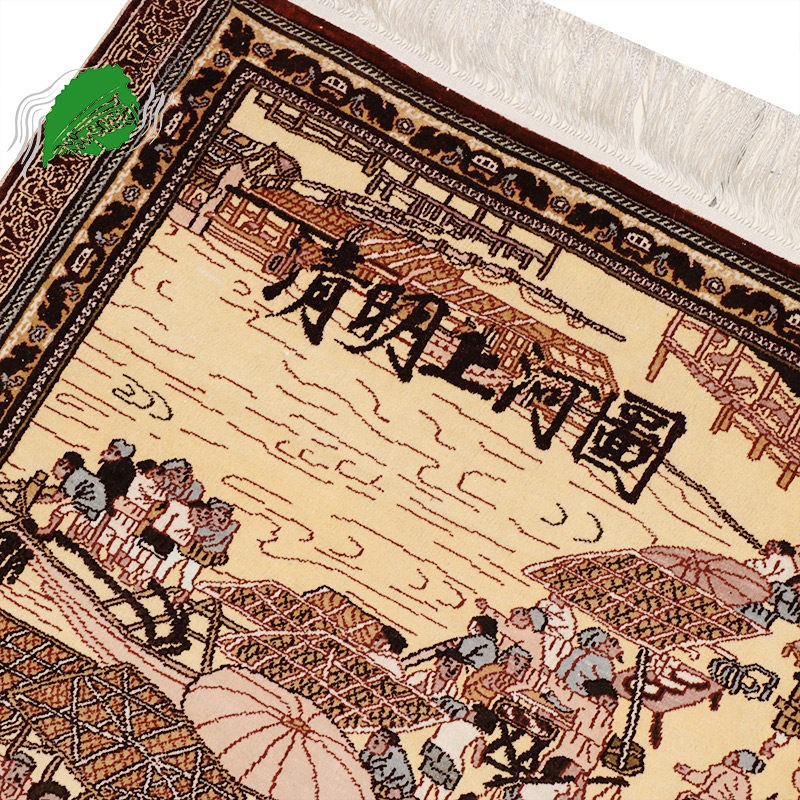 清明上河圖